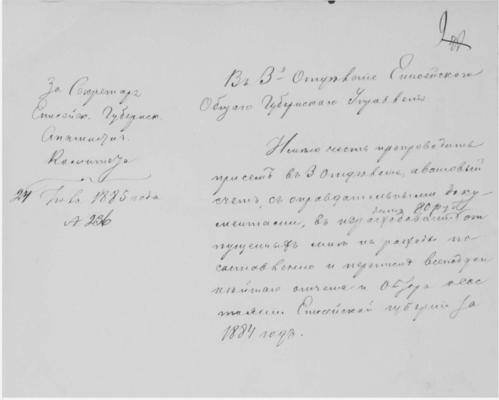 За Секретаря
Енисейск. Губернск.
Статистич.
Комитета
24 Янв. 1885 года
№ 236
Въ 3е Отдѣленіе Енисейскаго
Общаго Губернскаго Управленія
Имѣю честь препроводить
при семъ въ 3 Отдѣленіе, авансовый
счетъ, съ оправдательными доку-
ментами, въ израсходованіи от
пущенныхъ мнѣ на расходы по
составленію и перепискѣ всеподдан
нѣйшаго отчета и Обзора о сос
тояніи Енисейской губерніи за
1884 годъ.